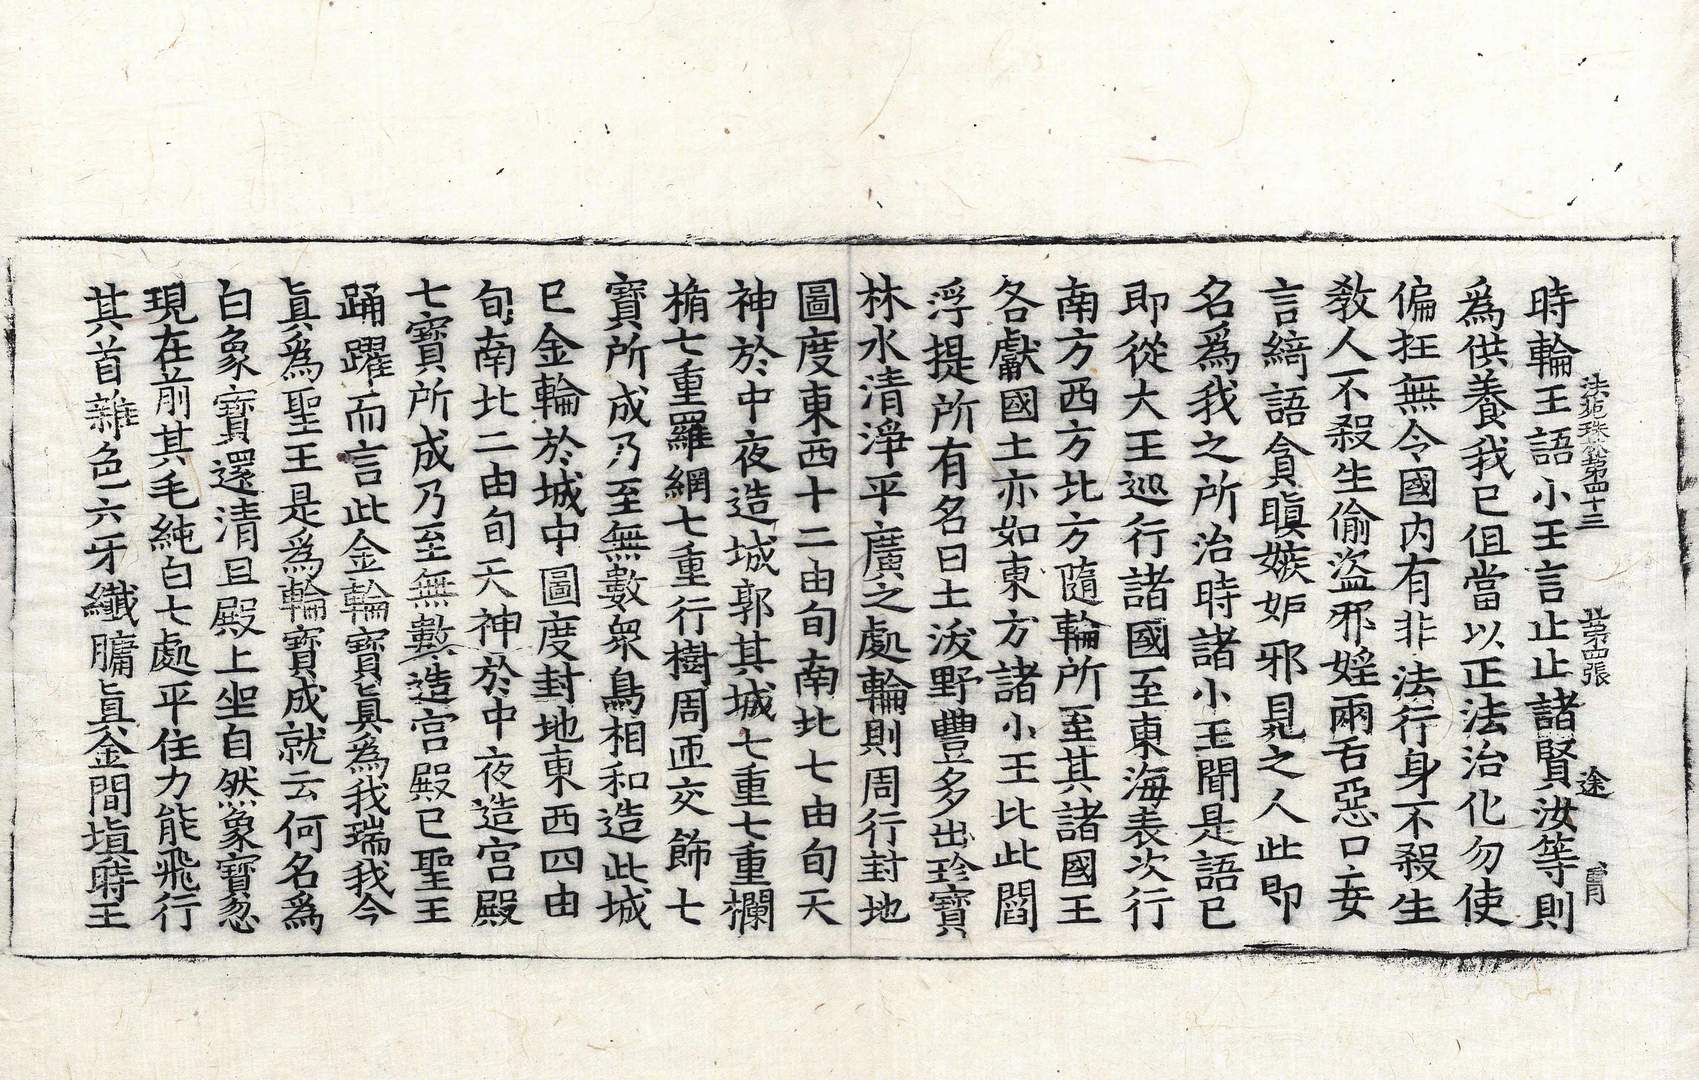 法苑珠林第四十三　第四張　途
時輪王語小王言止止諸賢汝等則
爲供養我已但當以正法治化勿使
偏抂無令國内有非法行身不殺生
敎人不殺生偷盜邪婬兩舌惡口妄
言綺語貪瞋嫉妒邪見之人此卽
名爲我之所治時諸小王聞是語已
即從大王巡行諸國至東海表次行
南方西方北方隨輪所至其諸國王
各獻國土亦如東方諸小王比此閻
浮提所有名曰土沃野豐多出珍寶
林水清淨平廣之處輪則周行封地
圖度東西十二由旬南北七由旬天
神於中夜造城郭其城七重七重欄
楯七重羅網七重行樹周匝交飾七
寶所成乃至無數衆鳥相和造此城
已金輪於城中圖度封地東西四由
旬南北二由旬天神於中夜造宮殿
七寶所成乃至無數造宮殿已聖王
踊躍而言此金輪寶眞為我瑞我今
眞爲聖王是爲輪寶成就云何名爲
白象寶還清旦殿上坐自然象寶忽
現在前其毛純白七處平住力能飛行
其首雜色六牙纖𦟛眞金間塡時王